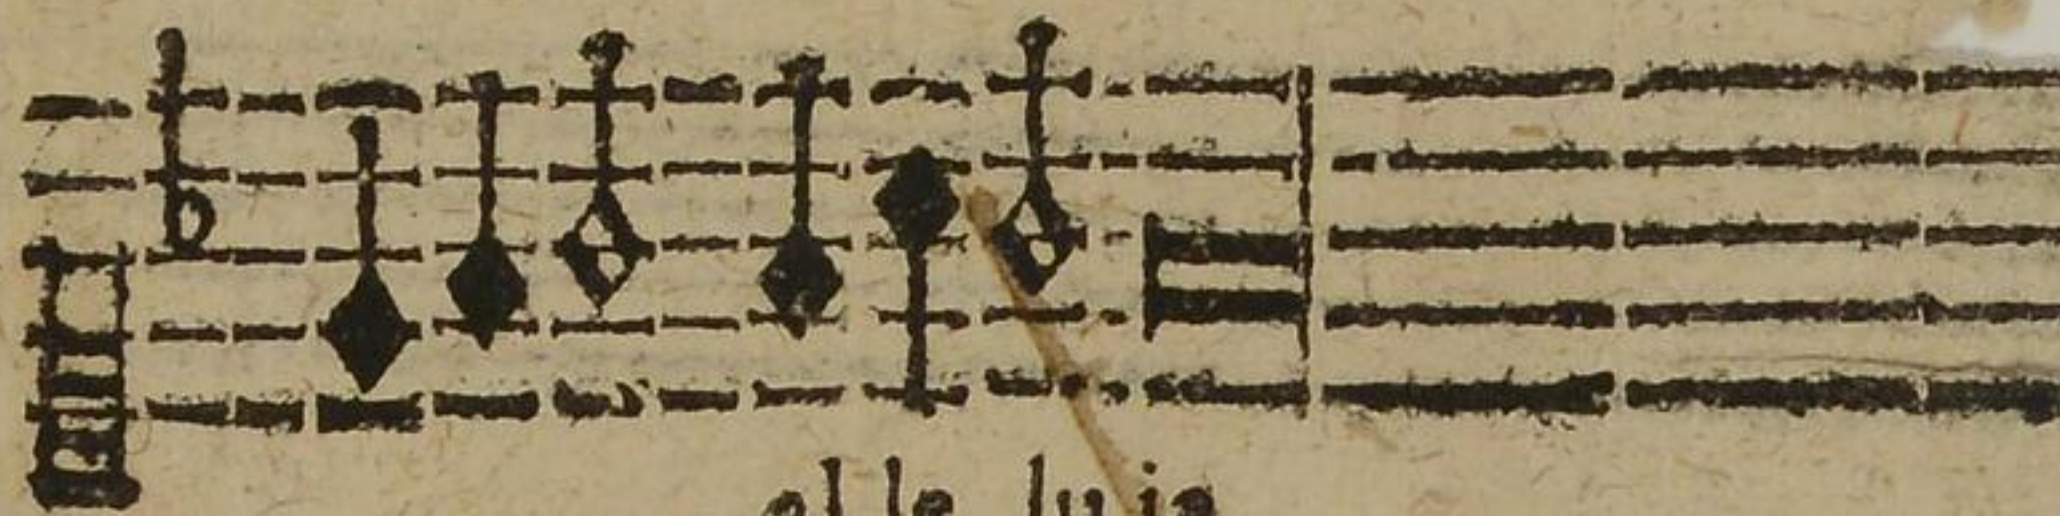 alle luia